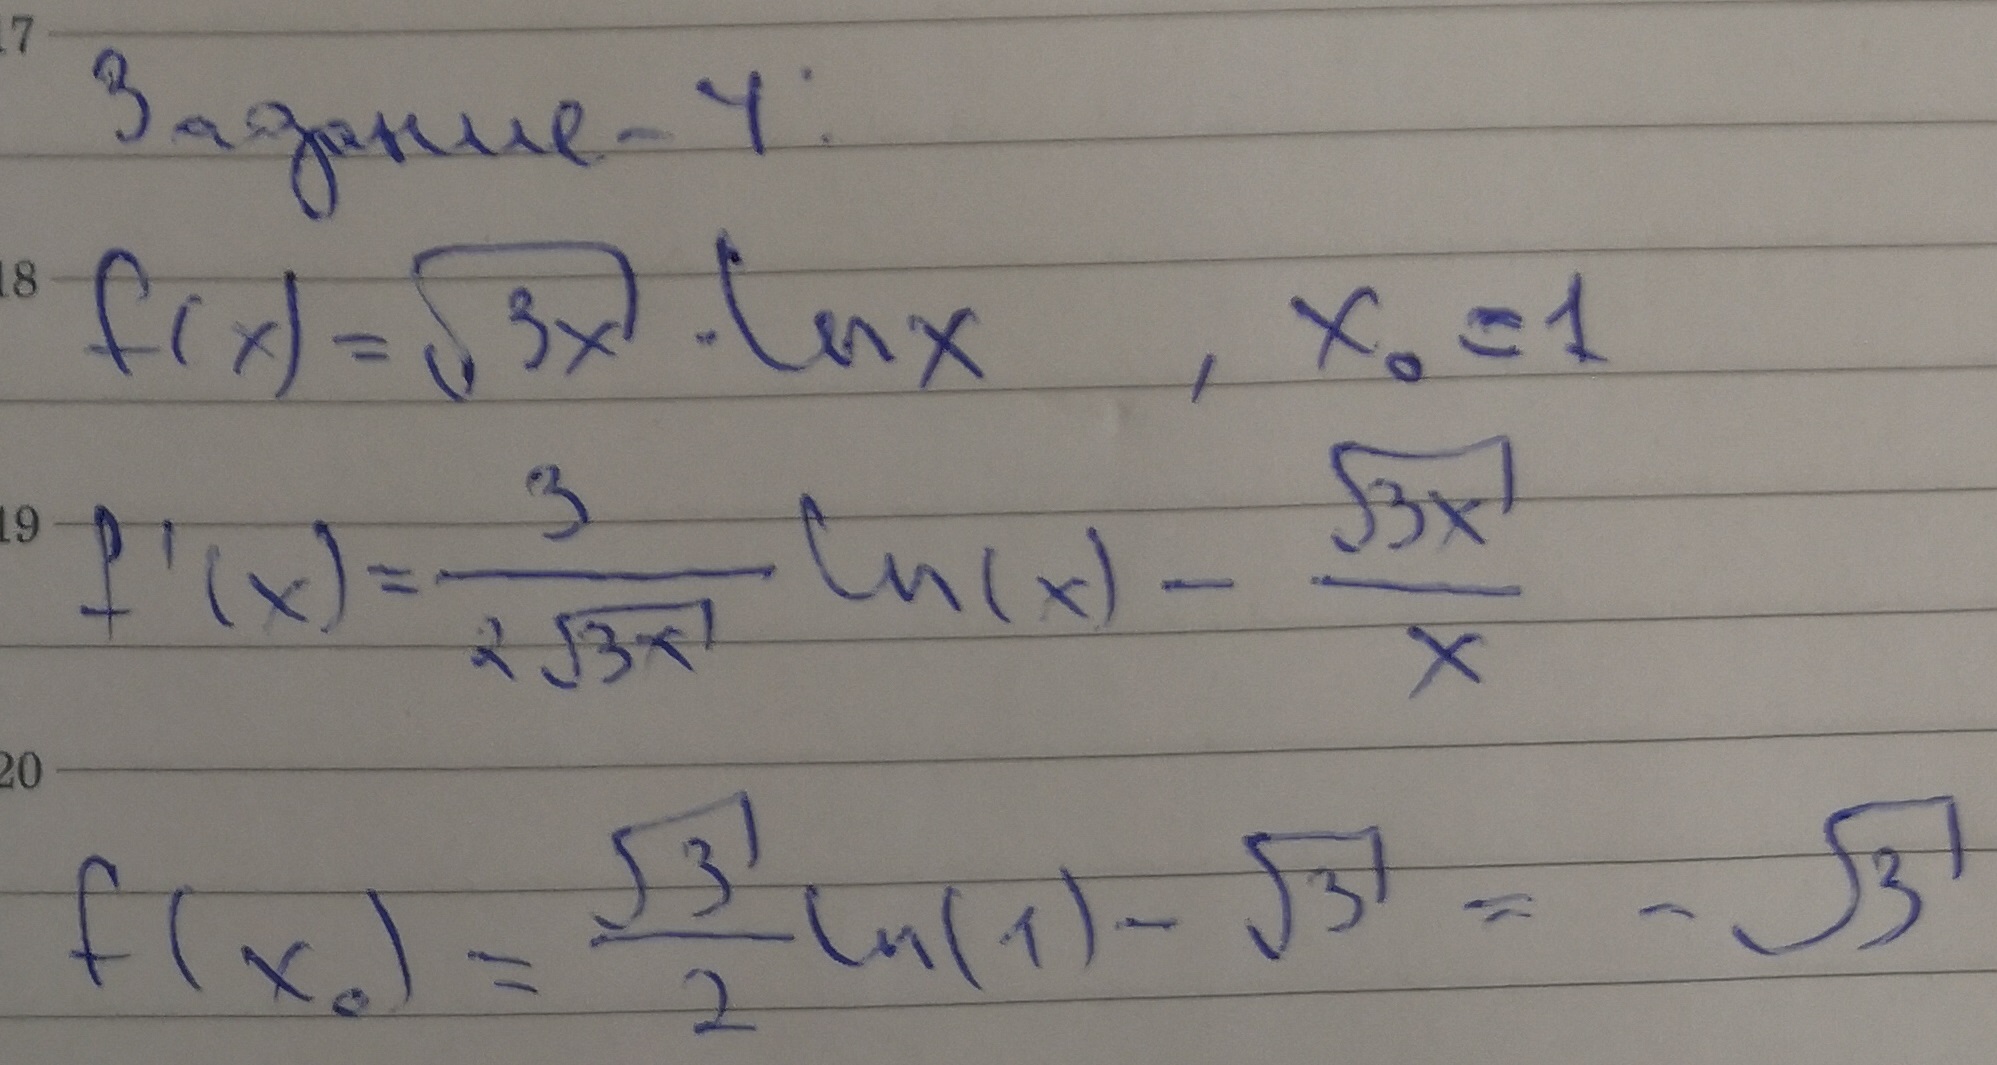 17
Задание-4:
18 f(x)=√3x · ln x , x₀ = 1
19 f'(x)= 3/(2√3x) ln(x) - √3x/x
20
f(x₀) = √3/2 ln(1) - √3 = -√3